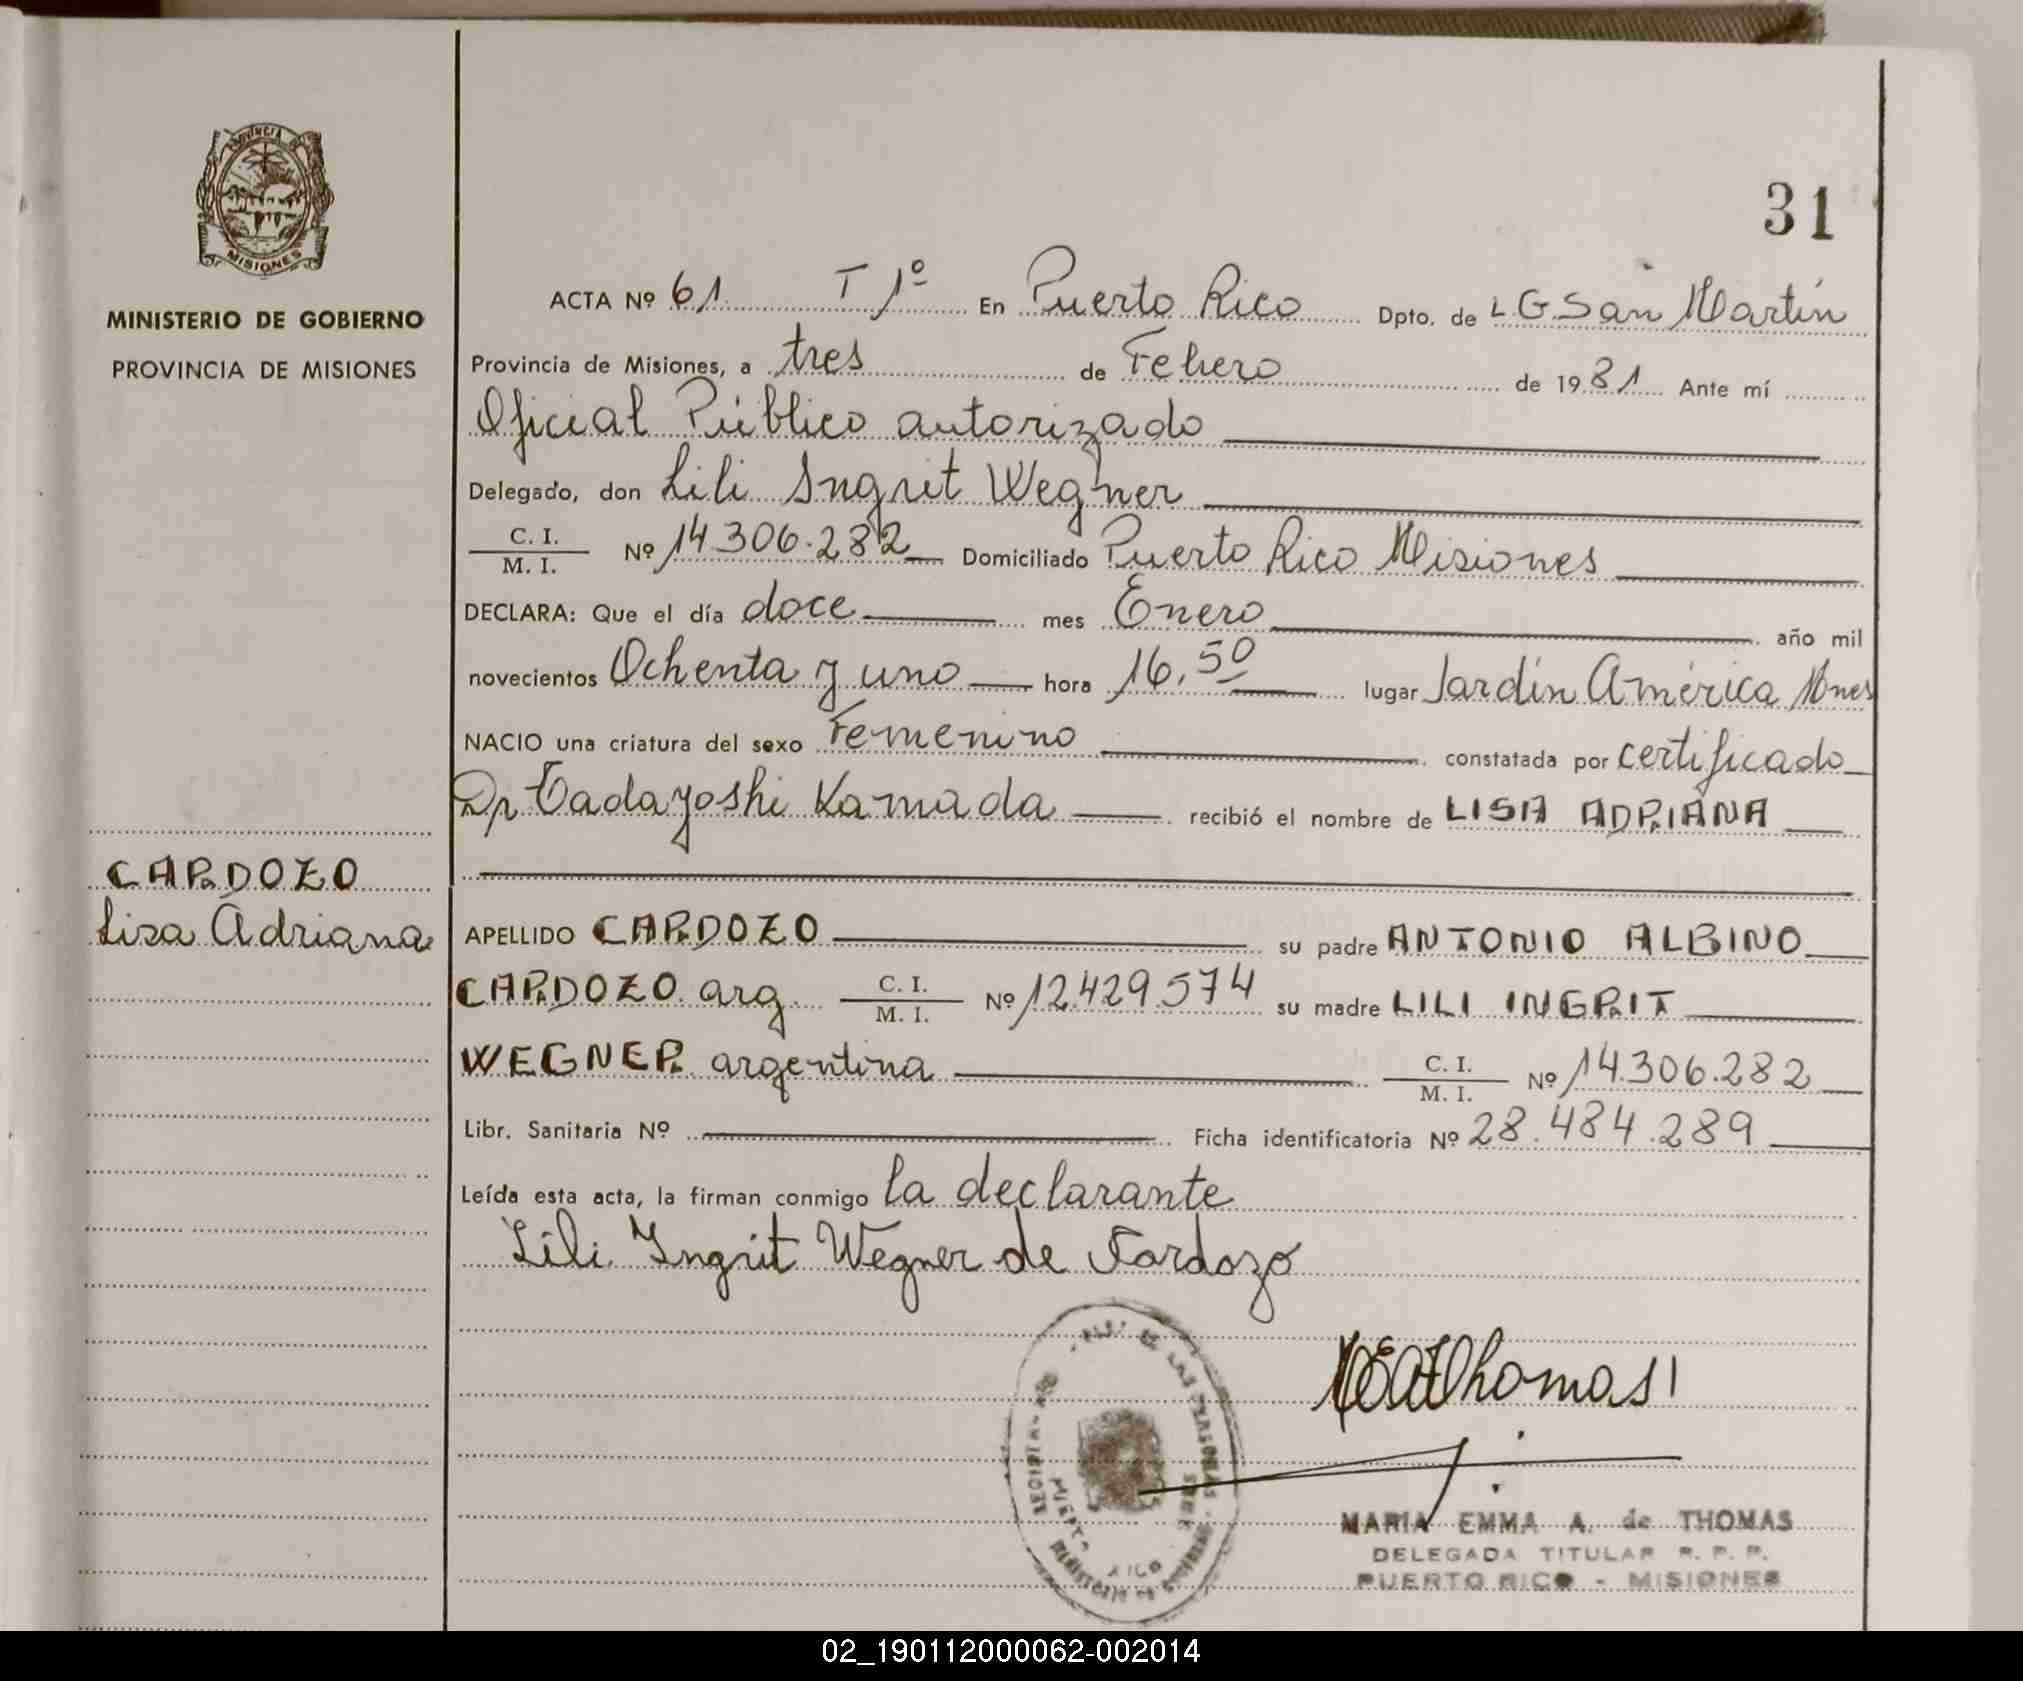 PROVINCIA DE
MISIONES
MINISTERIO DE GOBIERNO
PROVINCIA DE MISIONES
31
ACTA Nº 61 T 1º En Puerto Rico Dpto. de L.G.San Martín
Provincia de Misiones, a tres de Febrero de 1981 Ante mí
Oficial Público autorizado
Delegado, don Lili Ingrit Wegner
C. I.
M. I. Nº 14.306.282 Domiciliado Puerto Rico Misiones
DECLARA: Que el día doce mes Enero año mil
novecientos Ochenta y uno hora 16,50 lugar Jardín América Mnes
NACIO una criatura del sexo Femenino constatada por certificado
Dr Tadayoshi Kamada recibió el nombre de LISA ADRIANA
CARDOZO
Lisa Adriana
APELLIDO CARDOZO su padre ANTONIO ALBINO
CARDOZO arg. C. I.
M. I. Nº 12.429.574 su madre LILI INGRIT
WEGNER argentina C. I.
M. I. Nº 14.306.282
Libr. Sanitaria Nº Ficha identificatoria Nº 28.484.289
Leída esta acta, la firman conmigo la declarante
Lili Ingrit Wegner de Cardozo
MEAThomas
DE LAS PERSONAS
MARIA EMMA A. de THOMAS
DELEGADA TITULAR R. P. P.
PUERTO RICO - MISIONES
02_190112000062-002014